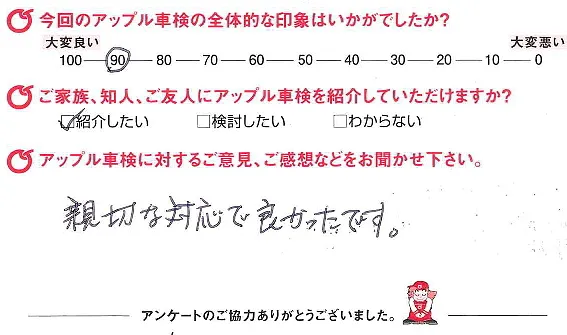 今回のアップル車検の全体的な印象はいかがでしたか?
大変良い 大変悪い
100 90 80 70 60 50 40 30 20 10 0
ご家族、知人、ご友人にアップル車検を紹介していただけますか?
☑紹介したい □検討したい □わからない
アップル車検に対するご意見、ご感想などをお聞かせ下さい。
親切な対応で良かったです。
アンケートのご協力ありがとうございました。